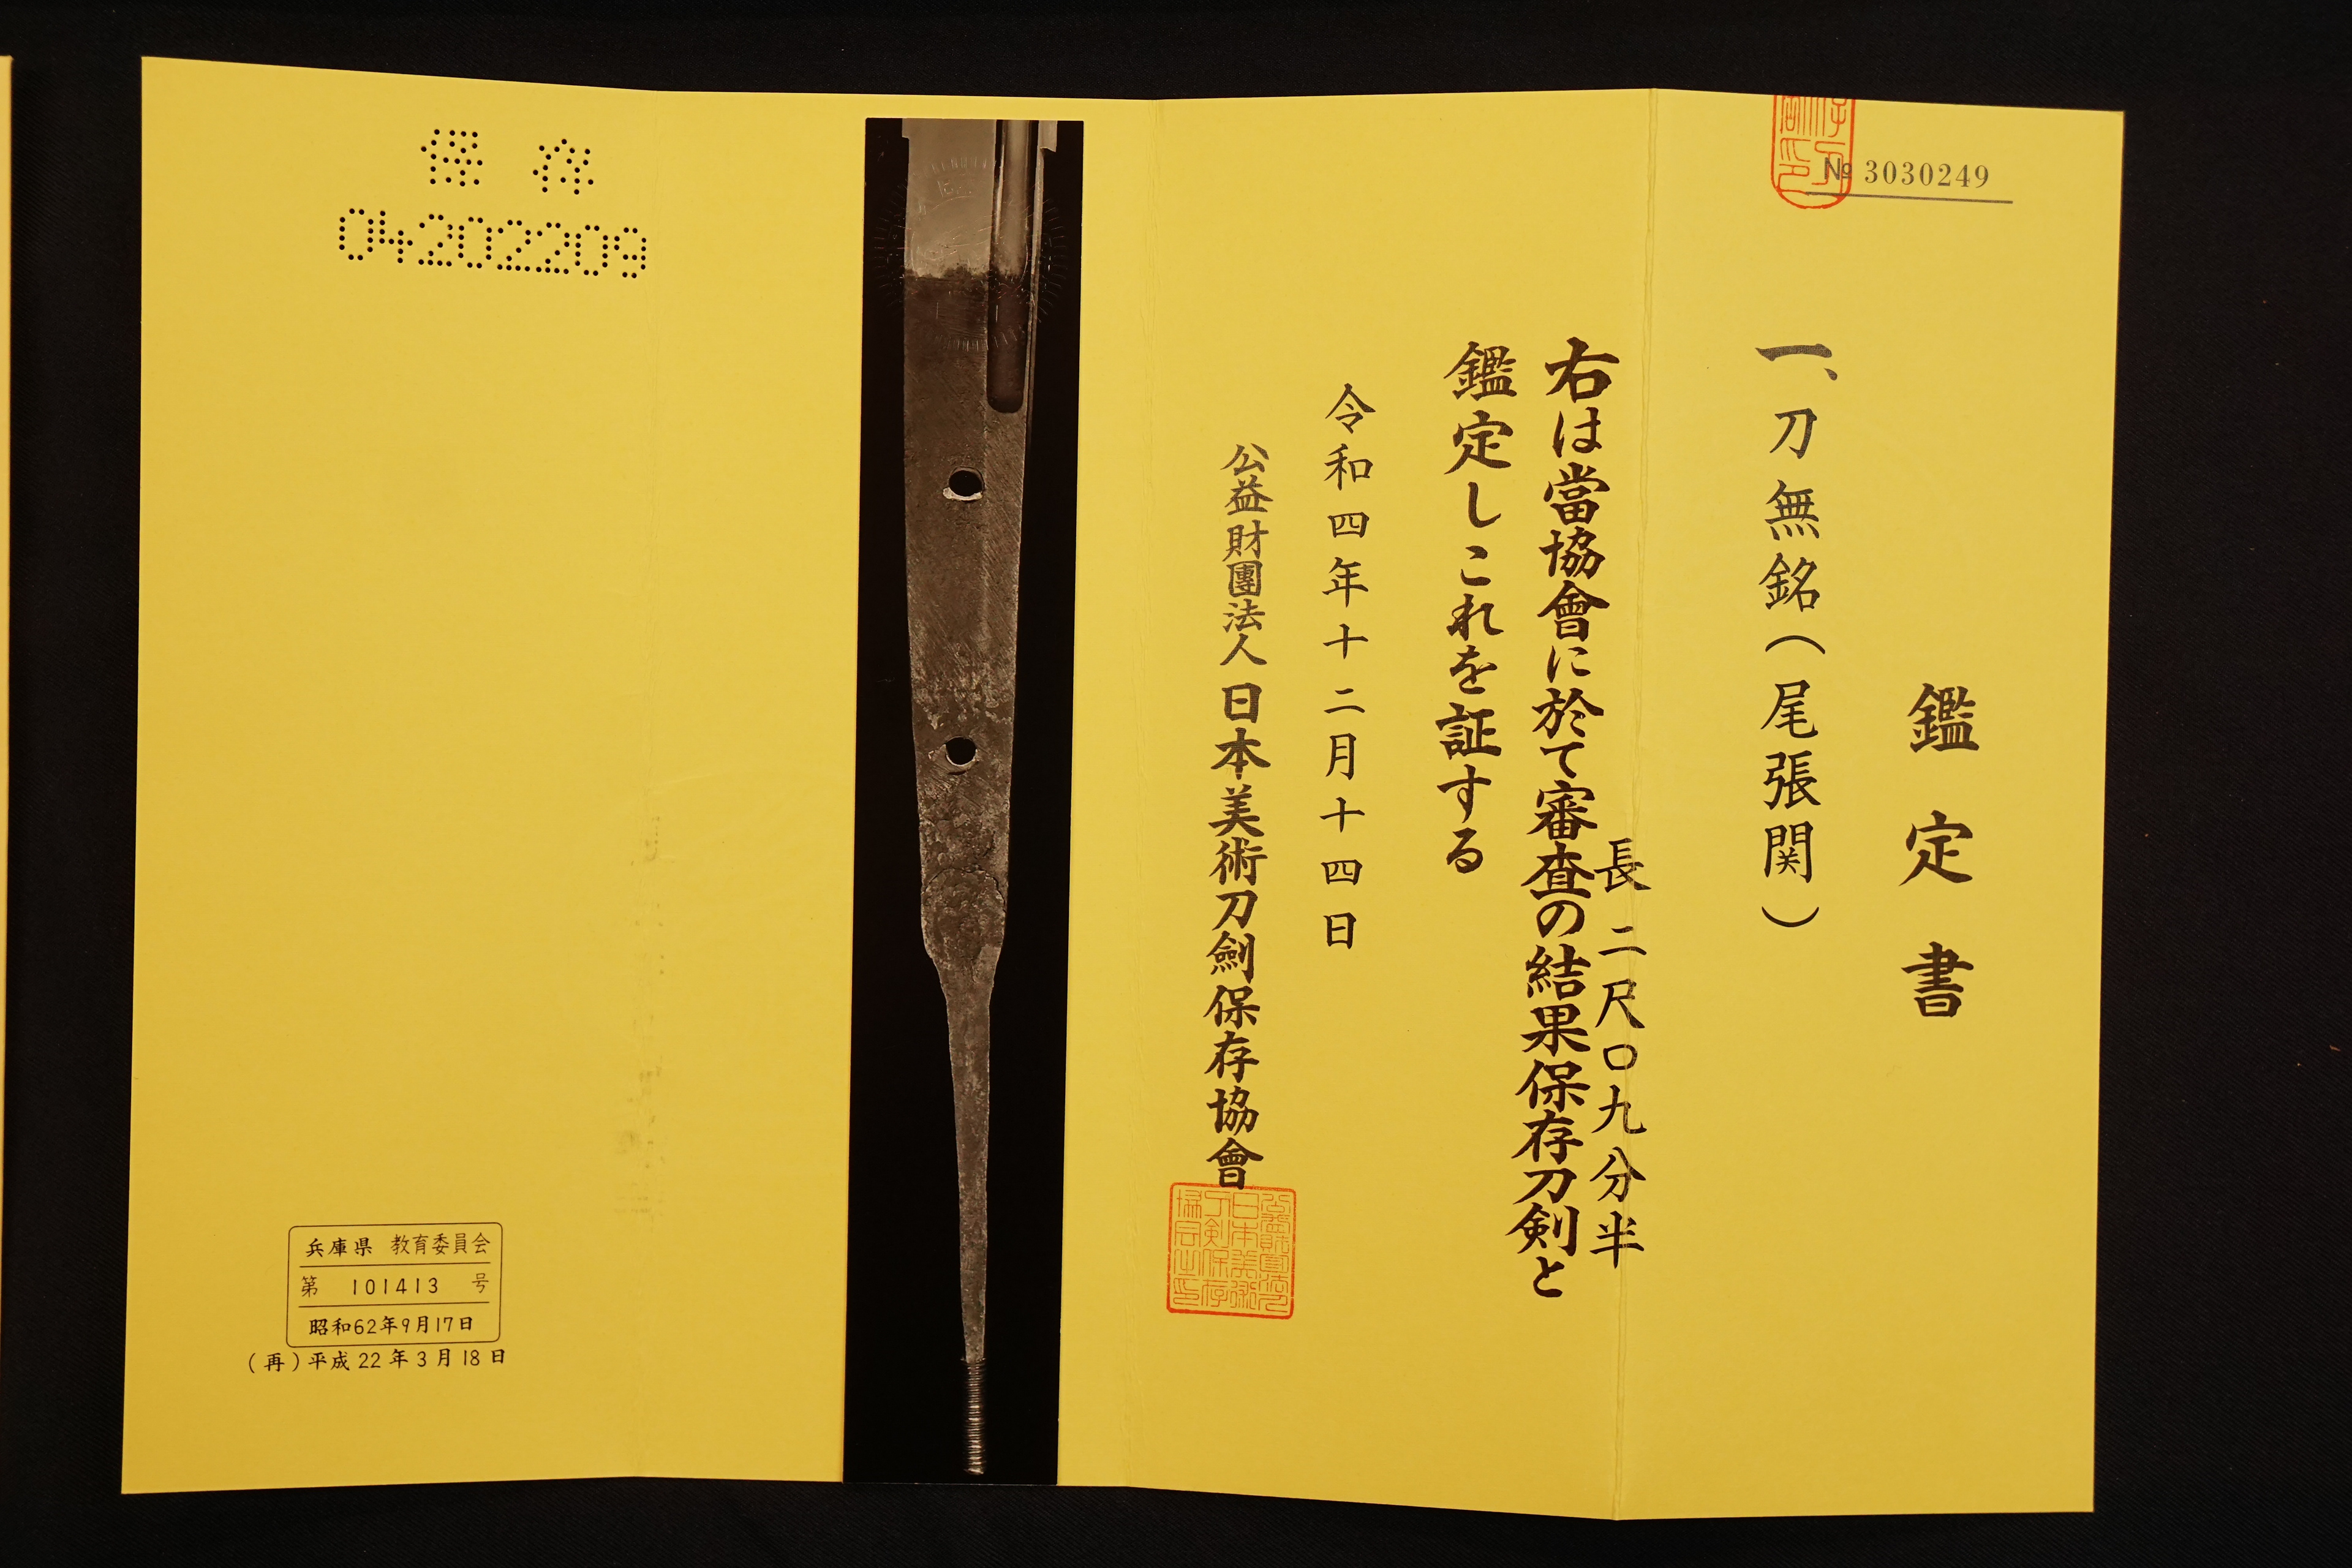 № 3030249
鑑定書
一、刀 無銘（尾張関）
長 二尺〇九分半
右は當協會に於て審査の結果保存刀剣と
鑑定しこれを証する
令和四年十二月十四日
公益財團法人 日本美術刀劍保存協會
公益財團法人日本美術刀剣保存協会之印
保存
04202209
兵庫県 教育委員会
第 101413 号
昭和62年9月17日
(再)平成22年3月18日